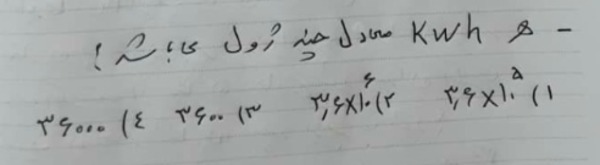 - هر Kwh معادل چند ژول می باشد؟
۱) ۳٫۶×۱۰^۵ ۲) ۳٫۶×۱۰^۶ ۳) ۳۶۰۰ ۴) ۳۶۰۰۰